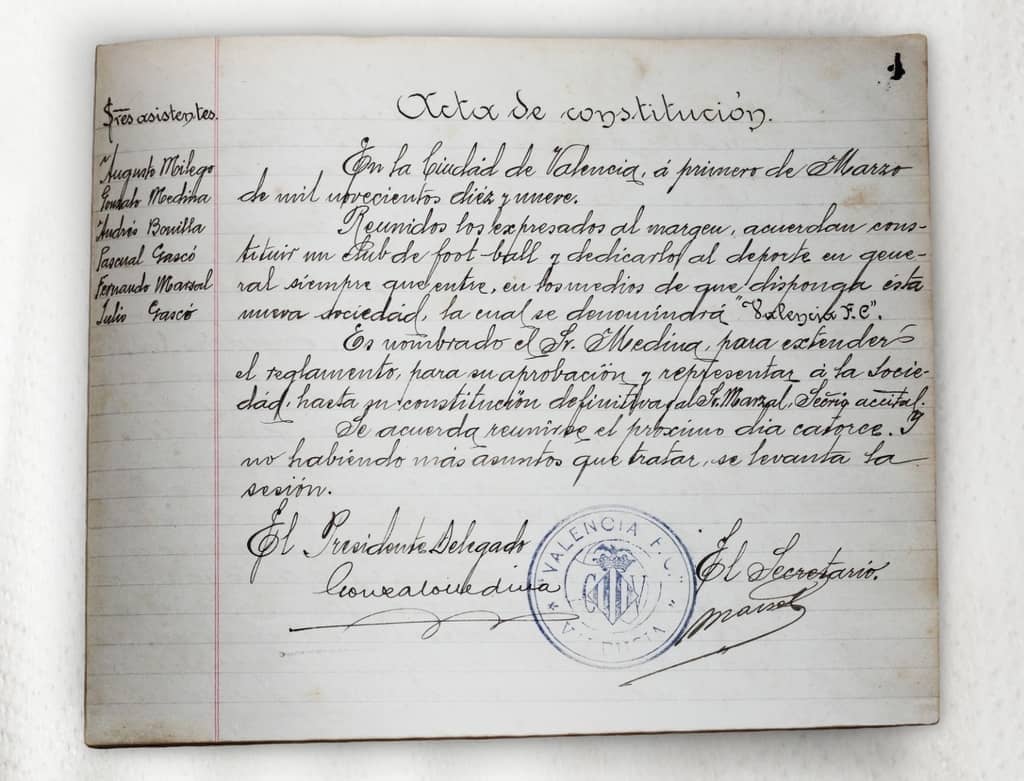 1
Sres asistentes.
Augusto Milego
Gonzalo Medina
Andrés Bonilla
Pascual Gascó
Fernando Marsal
Julio Gascó
Acta de constitución.
En la Ciudad de Valencia, á primero de Marzo
de mil novecientos diéz y nueve.
Reunidos los expresados al margen, acuerdan cons-
tituir un Club de foot-ball y dedicarlo al deporte en gene-
ral siempre que entre, en los medios de que disponga ésta
nueva sociedad, la cual se denominará "Valencia F.C".
Es nombrado el Sr. Medina, para extender
el reglamento, para su aprobación y representar á la Socie-
dád, hasta su constitución definitiva y al Sr. Marzal, Secrio accital.
Se acuerda reunirse el próximo dia catorce. Y
no habiendo más asuntos que tratar, se levanta la
sesión.
El Presidente Delegado
Gonzalo Medina
"VALENCIA F.C."
VALENCIA
El Secretario.
Marsal